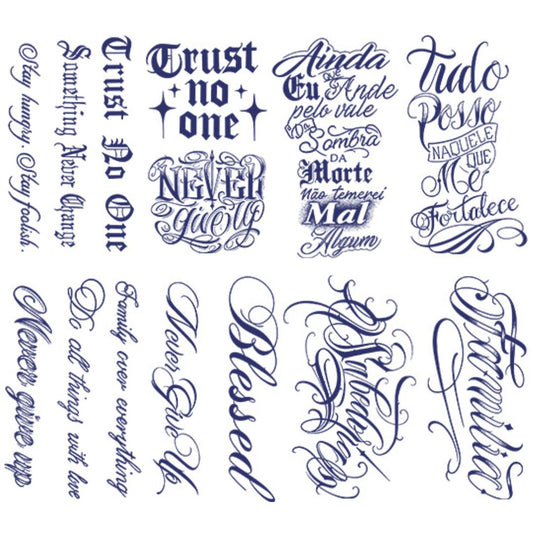 Stay hungry. Stay foolish.
Something Never Change
Trust No One
Trust
no
one
NEVER
give up
Ainda
que
Eu Ande
pelo vale
Da
Sombra
DA
Morte
Não temerei
Mal
Algum
Tudo
Posso
NAQUELE
QUE
Me
Fortalece
Never give up
Do all things with love
Family over everything
Never Give Up
Blessed
Familia